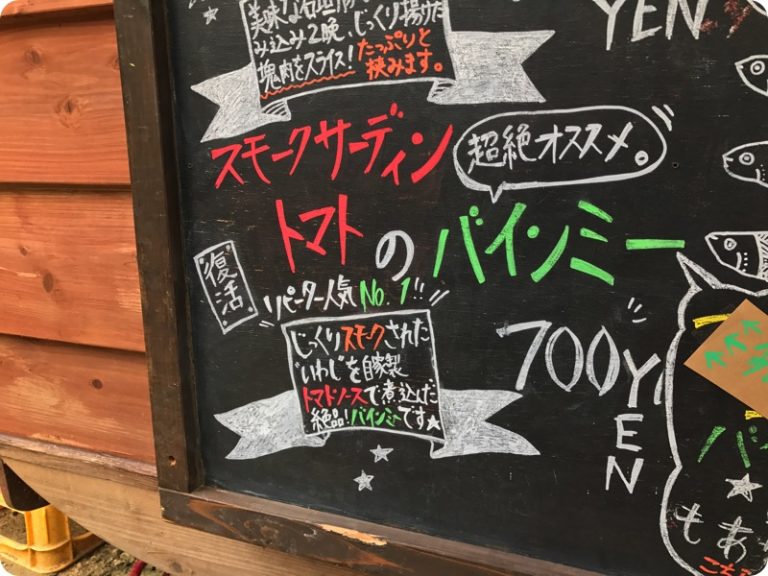 み込み2晩、じっくり揚げた
塊肉をスライス!たっぷりと
挟みます。
YEN
スモークサーディン
超絶オススメ。
トマトのバインミー
復活
リピーター人気No.1!!
700YEN
じっくりスモークされた
"いわし"を自家製
トマトソースで煮込んだ
絶品!バインミーです★
バ
もあ